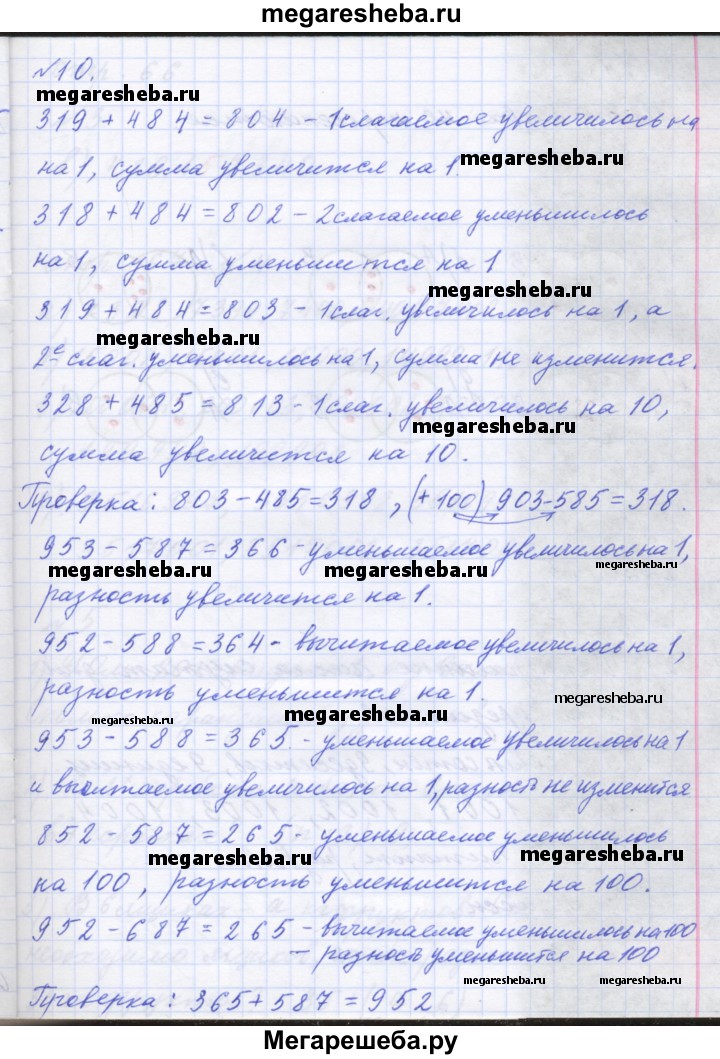 megaresheba.ru
№10.
megaresheba.ru
319 + 484 = 804 - 1 слагаемое увеличилось на
на 1, сумма увеличится на 1.
megaresheba.ru
318 + 484 = 802 - 2 слагаемое уменьшилось
на 1, сумма уменьшится на 1
megaresheba.ru
319 + 484 = 803 - 1 слаг. увеличилось на 1, а
megaresheba.ru
2е слаг. уменьшилось на 1, сумма не изменится.
328 + 485 = 813 - 1 слаг. увеличилось на 10,
megaresheba.ru
сумма увеличится на 10.
Проверка: 803 - 485 = 318, (+ 100) 903 - 585 = 318.
953 - 587 = 366 - уменьшаемое увеличилось на 1,
megaresheba.ru megaresheba.ru megaresheba.ru
разность увеличится на 1.
952 - 588 = 364 - вычитаемое увеличилось на 1,
разность уменьшится на 1.
megaresheba.ru
megaresheba.ru megaresheba.ru
953 - 588 = 365. - уменьшаемое увеличилось на 1
и вычитаемое увеличилось на 1, разность не изменится
852 - 587 = 265 - уменьшаемое уменьшилось
megaresheba.ru megaresheba.ru
на 100, разность уменьшится на 100.
952 - 687 = 265 - вычитаемое уменьшилось на 100
- разность уменьшится на 100
megaresheba.ru megaresheba.ru
Проверка: 365 + 587 = 952
Мегарешеба.ру